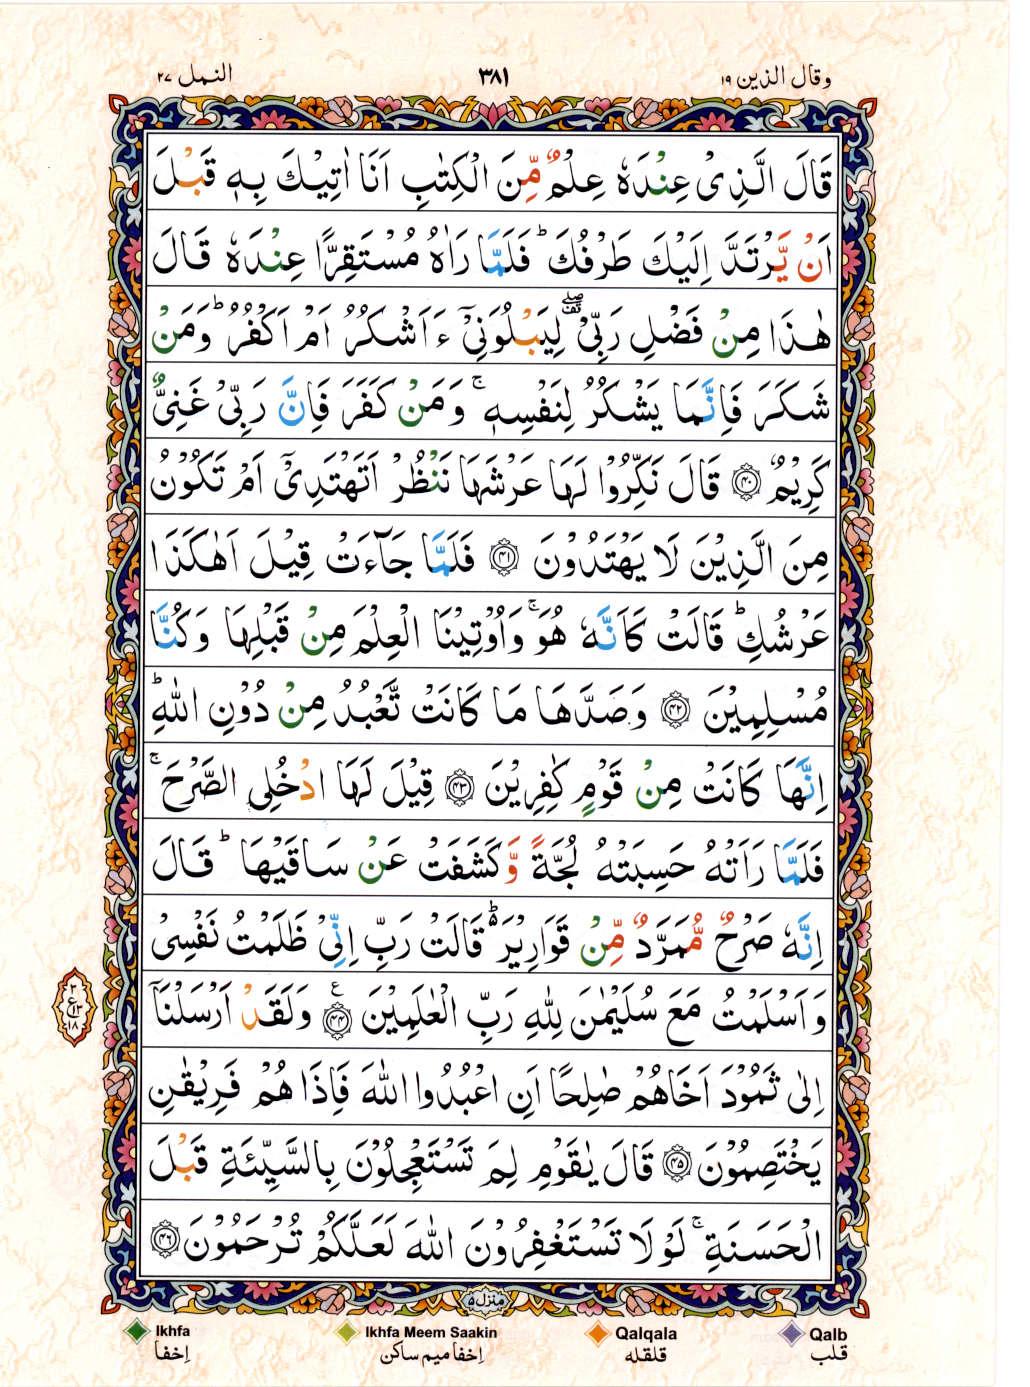 وقال الذين ١٩ ٣٨١ النمل ٢٧
قَالَ الَّذِیْ عِنْدَهٗ عِلْمٌ مِّنَ الْكِتٰبِ اَنَا اٰتِیْكَ بِهٖ قَبْلَ
اَنْ یَّرْتَدَّ اِلَیْكَ طَرْفُكَ ؕ فَلَمَّا رَاٰهُ مُسْتَقِرًّا عِنْدَهٗ قَالَ
هٰذَا مِنْ فَضْلِ رَبِّیْ ۖ۫ لِیَبْلُوَنِیْۤ ءَاَشْكُرُ اَمْ اَكْفُرُ ؕ وَمَنْ
شَكَرَ فَاِنَّمَا یَشْكُرُ لِنَفْسِهٖ ۚ وَمَنْ كَفَرَ فَاِنَّ رَبِّیْ غَنِیٌّ
كَرِیْمٌ ﴿۴۰﴾ قَالَ نَكِّرُوْا لَهَا عَرْشَهَا نَنْظُرْ اَتَهْتَدِیْۤ اَمْ تَكُوْنُ
مِنَ الَّذِیْنَ لَا یَهْتَدُوْنَ ﴿۴۱﴾ فَلَمَّا جَآءَتْ قِیْلَ اَهٰكَذَا
عَرْشُكِ ؕ قَالَتْ كَاَنَّهٗ هُوَ ۚ وَاُوْتِیْنَا الْعِلْمَ مِنْ قَبْلِهَا وَكُنَّا
مُسْلِمِیْنَ ﴿۴۲﴾ وَصَدَّهَا مَا كَانَتْ تَّعْبُدُ مِنْ دُوْنِ اللّٰهِ ؕ
اِنَّهَا كَانَتْ مِنْ قَوْمٍ كٰفِرِیْنَ ﴿۴۳﴾ قِیْلَ لَهَا ادْخُلِی الصَّرْحَ ۚ
فَلَمَّا رَاَتْهُ حَسِبَتْهُ لُجَّةً وَّكَشَفَتْ عَنْ سَاقَیْهَا ؕ قَالَ
اِنَّهٗ صَرْحٌ مُّمَرَّدٌ مِّنْ قَوَارِیْرَ ؕ۬ قَالَتْ رَبِّ اِنِّیْ ظَلَمْتُ نَفْسِیْ
وَاَسْلَمْتُ مَعَ سُلَیْمٰنَ لِلّٰهِ رَبِّ الْعٰلَمِیْنَ ﴿۴۴﴾ ع وَلَقَدْ اَرْسَلْنَاۤ
اِلٰی ثَمُوْدَ اَخَاهُمْ صٰلِحًا اَنِ اعْبُدُوا اللّٰهَ فَاِذَا هُمْ فَرِیْقٰنِ
یَخْتَصِمُوْنَ ﴿۴۵﴾ قَالَ یٰقَوْمِ لِمَ تَسْتَعْجِلُوْنَ بِالسَّیِّئَةِ قَبْلَ
الْحَسَنَةِ ۚ لَوْلَا تَسْتَغْفِرُوْنَ اللّٰهَ لَعَلَّكُمْ تُرْحَمُوْنَ ﴿۴۶﴾
٣ ع ١٣ ١٨
منزل ۵
Ikhfa Ikhfa Meem Saakin Qalqala Qalb
اِخفا اِخفا میم ساکن قلقله قلب